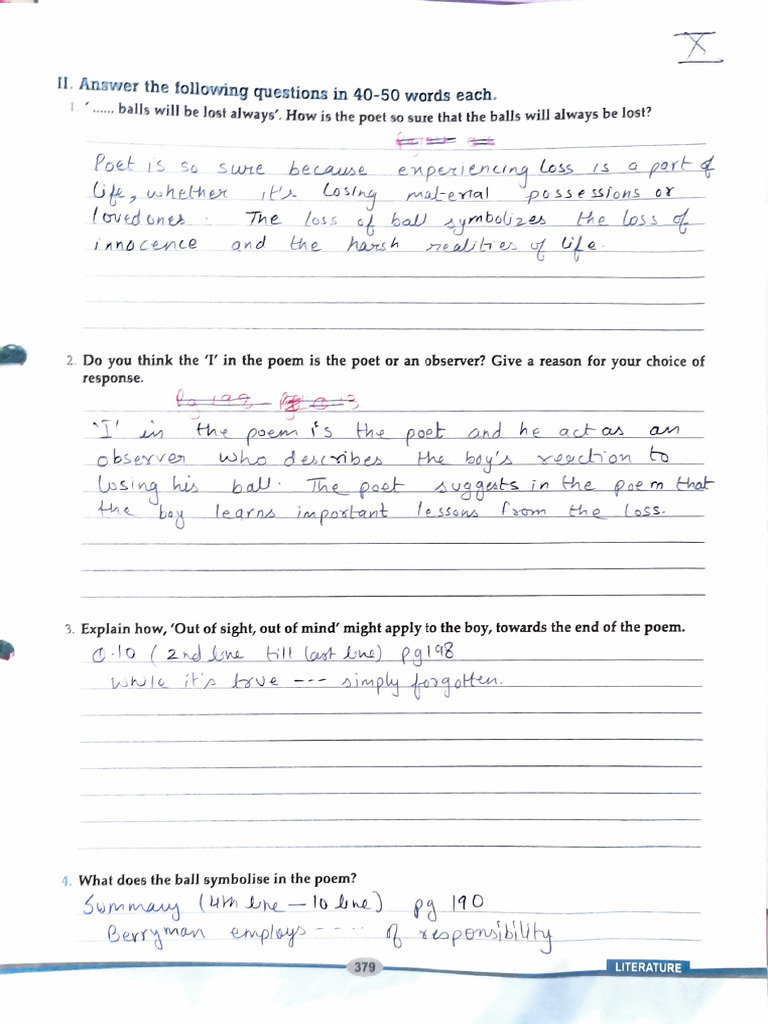 X
II. Answer the following questions in 40-50 words each.
1. '...... balls will be lost always'. How is the poet so sure that the balls will always be lost?
Poet is so sure because experiencing loss is a part of
life, whether it's losing material possessions or
loved ones. The loss of ball symbolizes the loss of
innocence and the harsh realities of life.
2. Do you think the 'I' in the poem is the poet or an observer? Give a reason for your choice of
response.
Pg 198
'I' in the poem is the poet and he act as an
observer who describes the boy's reaction to
losing his ball. The poet suggests in the poem that
the boy learns important lessons from the loss.
3. Explain how, 'Out of sight, out of mind' might apply to the boy, towards the end of the poem.
Q.10 (2nd line till last line) pg 198
While it's true --- simply forgotten.
4. What does the ball symbolise in the poem?
Summary (4th line – 10 line) pg 190
Berryman employs ----- of responsibility
379
LITERATURE